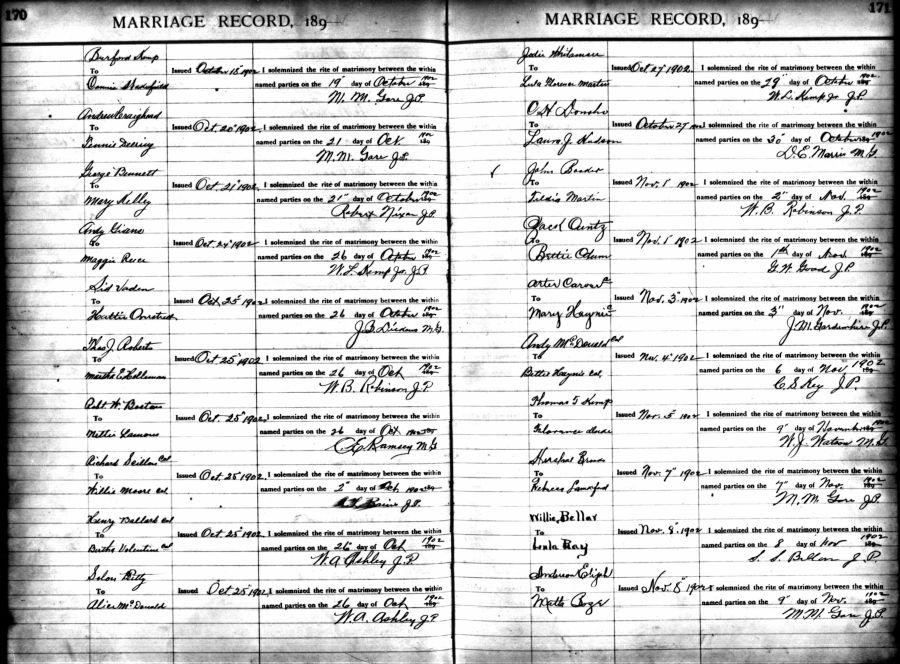 170
MARRIAGE RECORD, 189
Burford Kemp
To
Issued October 18" 1902 I solemnized the rite of matrimony between the within
named parties on the 19" day of October 1902
M. M. Gore J.P.
Andrew Craighead
To
Issued Oct. 20" 1902 I solemnized the rite of matrimony between the within
named parties on the 21 day of Oct. 1902 189
M. M. Gore J.P.
George Bennett
To
Issued Oct. 21" 1902 I solemnized the rite of matrimony between the within
Mary Kelly
named parties on the 21" day of October 1902 189
Robert Nixon J.P.
Andy
To
Issued Oct. 24" 1902 I solemnized the rite of matrimony between the within
Maggie
named parties on the 26 day of October 1902 189
W. L. Kemp Jr. J.P.
Sid Vaden
To
Issued Oct. 25" 1902 I solemnized the rite of matrimony between the within
Hattie
named parties on the 26 day of October 1902 189
J. B. M.G.
Thos J. Roberts
To
Issued Oct 25" 1902 I solemnized the rite of matrimony between the within
Martha E Holleman
named parties on the 26 day of Oct 1902 189
W. B. Robinson J.P.
Robt W.
To
Issued Oct. 25" 1902 I solemnized the rite of matrimony between the within
Nettie
named parties on the 26 day of Oct 1902 189
Ramsey M.G.
Richard Col
To
Issued Oct. 25" 1902 I solemnized the rite of matrimony between the within
Willie Moore Col
named parties on the 2" day of Oct 1902 189
J.P.
Henry Ballard Col
To
Issued Oct. 25" 1902 I solemnized the rite of matrimony between the within
Bertha Valentine Col
named parties on the 26" day of Oct 1902 189
W. A. Ashley J.P.
To
Issued Oct 25" 1902 I solemnized the rite of matrimony between the within
Alice McDonald
named parties on the 26 day of Oct 1902 189
W. A. Ashley J.P.
171
MARRIAGE RECORD, 189
Jodie Whitamore
To
Issued Oct 27" 1902 I solemnized the rite of matrimony between the within
Lula Florence Martin
named parties on the 29" day of October 1902 189
W. L. Kemp Jr. J.P.
O H Donoho
To
Issued October 27 1902 I solemnized the rite of matrimony between the within
Laura J. Hudson
named parties on the 30" day of October 1902 189
D. E. Morris M.G.
John
To
Issued Nov. 1" 1902 I solemnized the rite of matrimony between the within
Martin
named parties on the 2" day of Nov. 1902 189
W. B. Robinson J.P.
To
Issued Nov. 1" 1902 I solemnized the rite of matrimony between the within
Bettie Odum
named parties on the 1st day of Nov 1902 189
G. W. Good J.P.
Arter Carver C
To
Issued Nov. 3" 1902 I solemnized the rite of matrimony between the within
Mary Haynie C
named parties on the 3" day of Nov. 1902 189
J. M. Gardenhire J.P.
Andy Col
To
Issued Nov. 4" 1902 I solemnized the rite of matrimony between the within
Bettie Haynie Col.
named parties on the 6 day of Nov 1902 189
C. S. Key J.P.
Thomas T Kemp
To
Issued Nov. 5" 1902 I solemnized the rite of matrimony between the within
named parties on the 9" day of November 1902 189
W. J. Watson M.G.
Hershal
To
Issued Nov. 7" 1902 I solemnized the rite of matrimony between the within
named parties on the 7" day of Nov. 1902 189
M. M. Gore J.P.
Willie Bellar
To
Issued Nov. 8" 1902 I solemnized the rite of matrimony between the within
Lula Ray
named parties on the 8 day of Nov 1902 189
S. S. Bellar J.P.
Anderson
To
Issued Nov. 8" 1902 I solemnized the rite of matrimony between the within
named parties on the 9" day of Nov. 1902 189
M. M. Gore J.P.